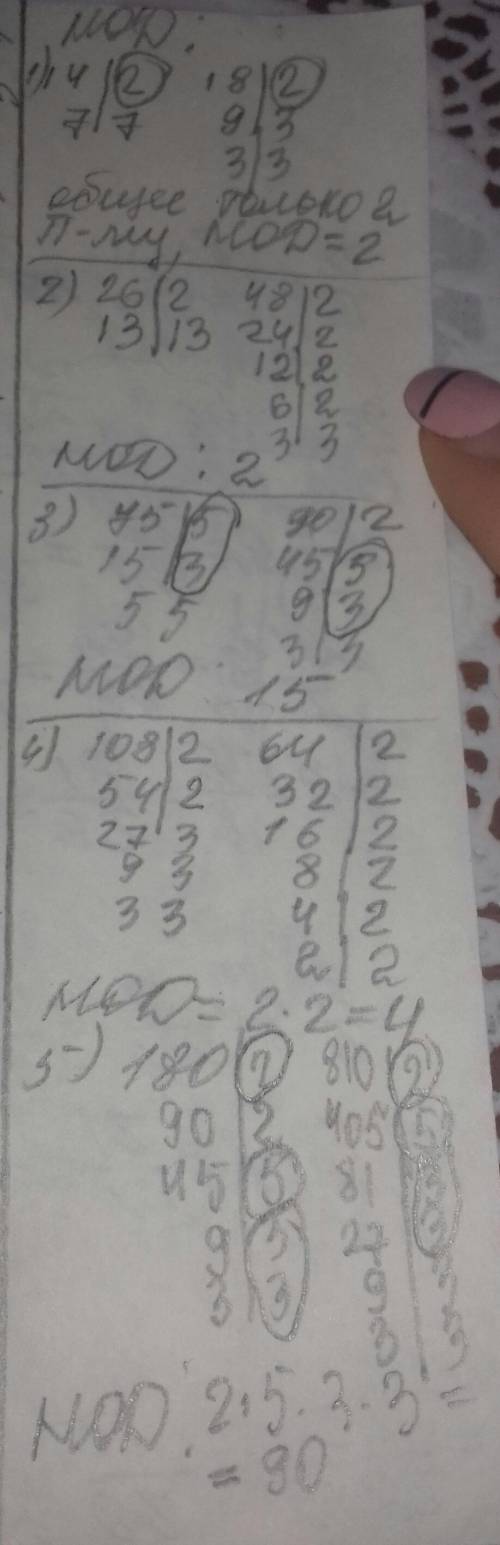 НОД:
1) 14|2 18|2
7|7 9|3
3|3
общее только 2
П-му НОД=2
2) 26|2 48|2
13|13 24|2
12|2
6|2
3 3
НОД: 2
3) 75|5 90|2
15|3 45|5
5 5 9|3
3|3
НОД: 15
4) 108|2 64|2
54|2 32|2
27 3 16|2
9 3 8|2
3 3 4|2
2|2
НОД=2·2=4
5) 180|2 810|2
90|2 405|5
45|5 81|3
9|3 27|3
3|3 9|3
3|3
НОД: 2·5·3·3=
=90